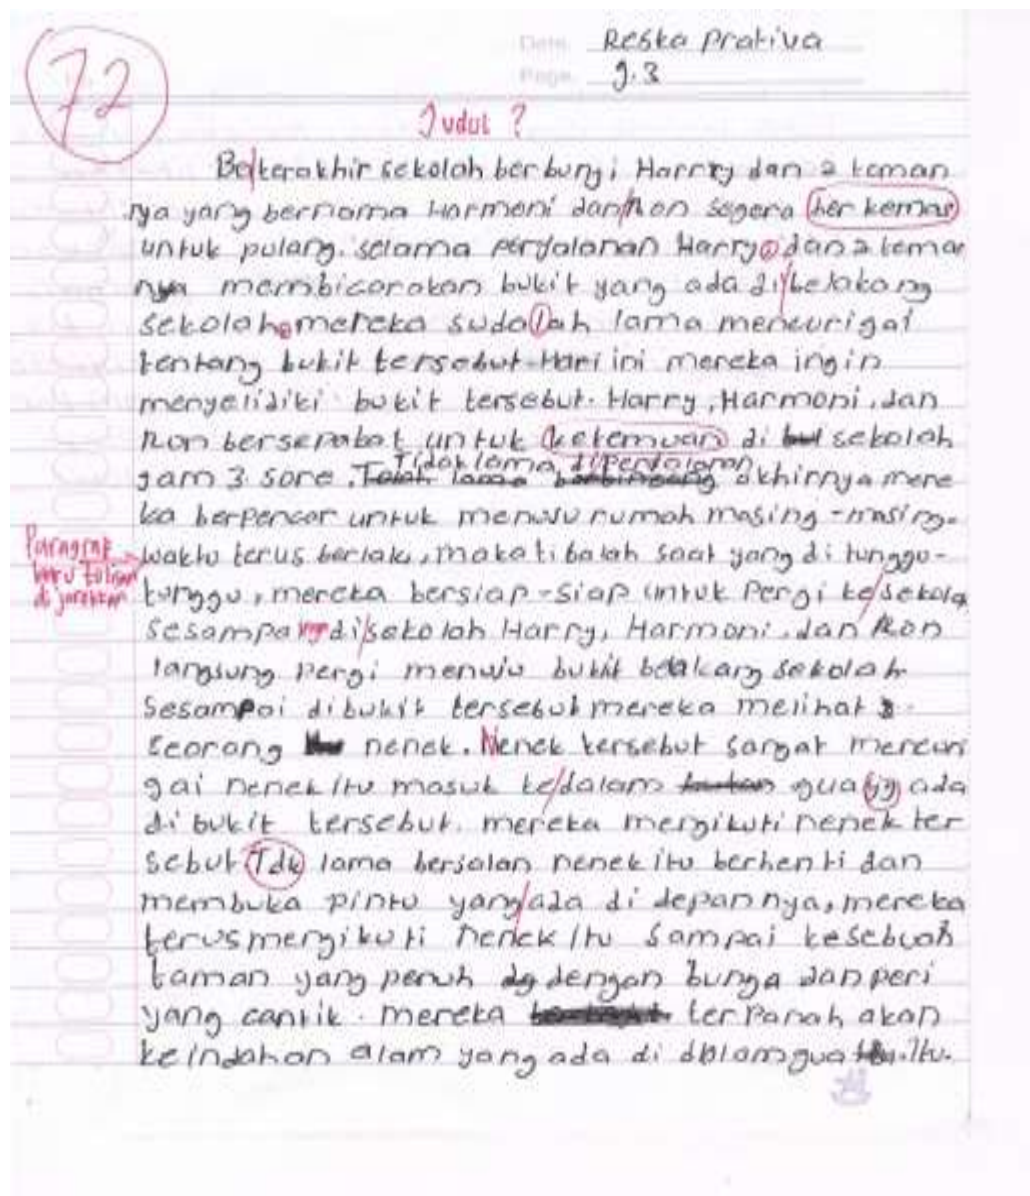 Date. Reska Prativa
Page. 9.3
72
Judul ?
Bel terakhir sekolah berbunyi Harry dan 2 teman
nya yang bernama Harmoni dan Ron segera berkemas
untuk pulang. selama perjalanan Harry dan 2 teman
nya membicarakan bukit yang ada di belakang
sekolah. mereka sudalah lama mencurigai
tentang bukit tersebut. Hari ini mereka ingin
menyelidiki bukit tersebut. Harry, Harmoni, dan
Ron bersepakat untuk ketemuan di sekolah
jam 3 sore. Tidak lama diperjalanan akhirnya mere
ka berpencar untuk menuju rumah masing-masing.
Paragrap baru tulisan di jorokkan
waktu terus berlalu, maka tibalah saat yang di tunggu-
tunggu, mereka bersiap-siap untuk Pergi ke sekola
Sesampai di sekolah Harry, Harmoni, dan Ron
langsung pergi menuju bukit belakang sekolah
Sesampai dibukit tersebut mereka melihat
seorang nenek. Nenek tersebut sangat mencuri
gai nenek itu masuk ke dalam gua yg ada
di bukit tersebut. mereka mengikuti nenek ter
sebut Tdk lama berjalan nenek itu berhenti dan
membuka pintu yang ada di depannya, mereka
terus mengikuti nenek itu sampai kesebuah
taman yang penuh dengan bunga dan peri
yang cantik. mereka terPanah akan
keindahan alam yang ada di dalam gua itu.